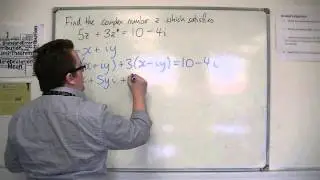 Find the complex number z which satisfies
5z + 3z* = 10 - 4i
x + iy
x + iy) + 3(x - iy) = 10 - 4i
+ 5yi +